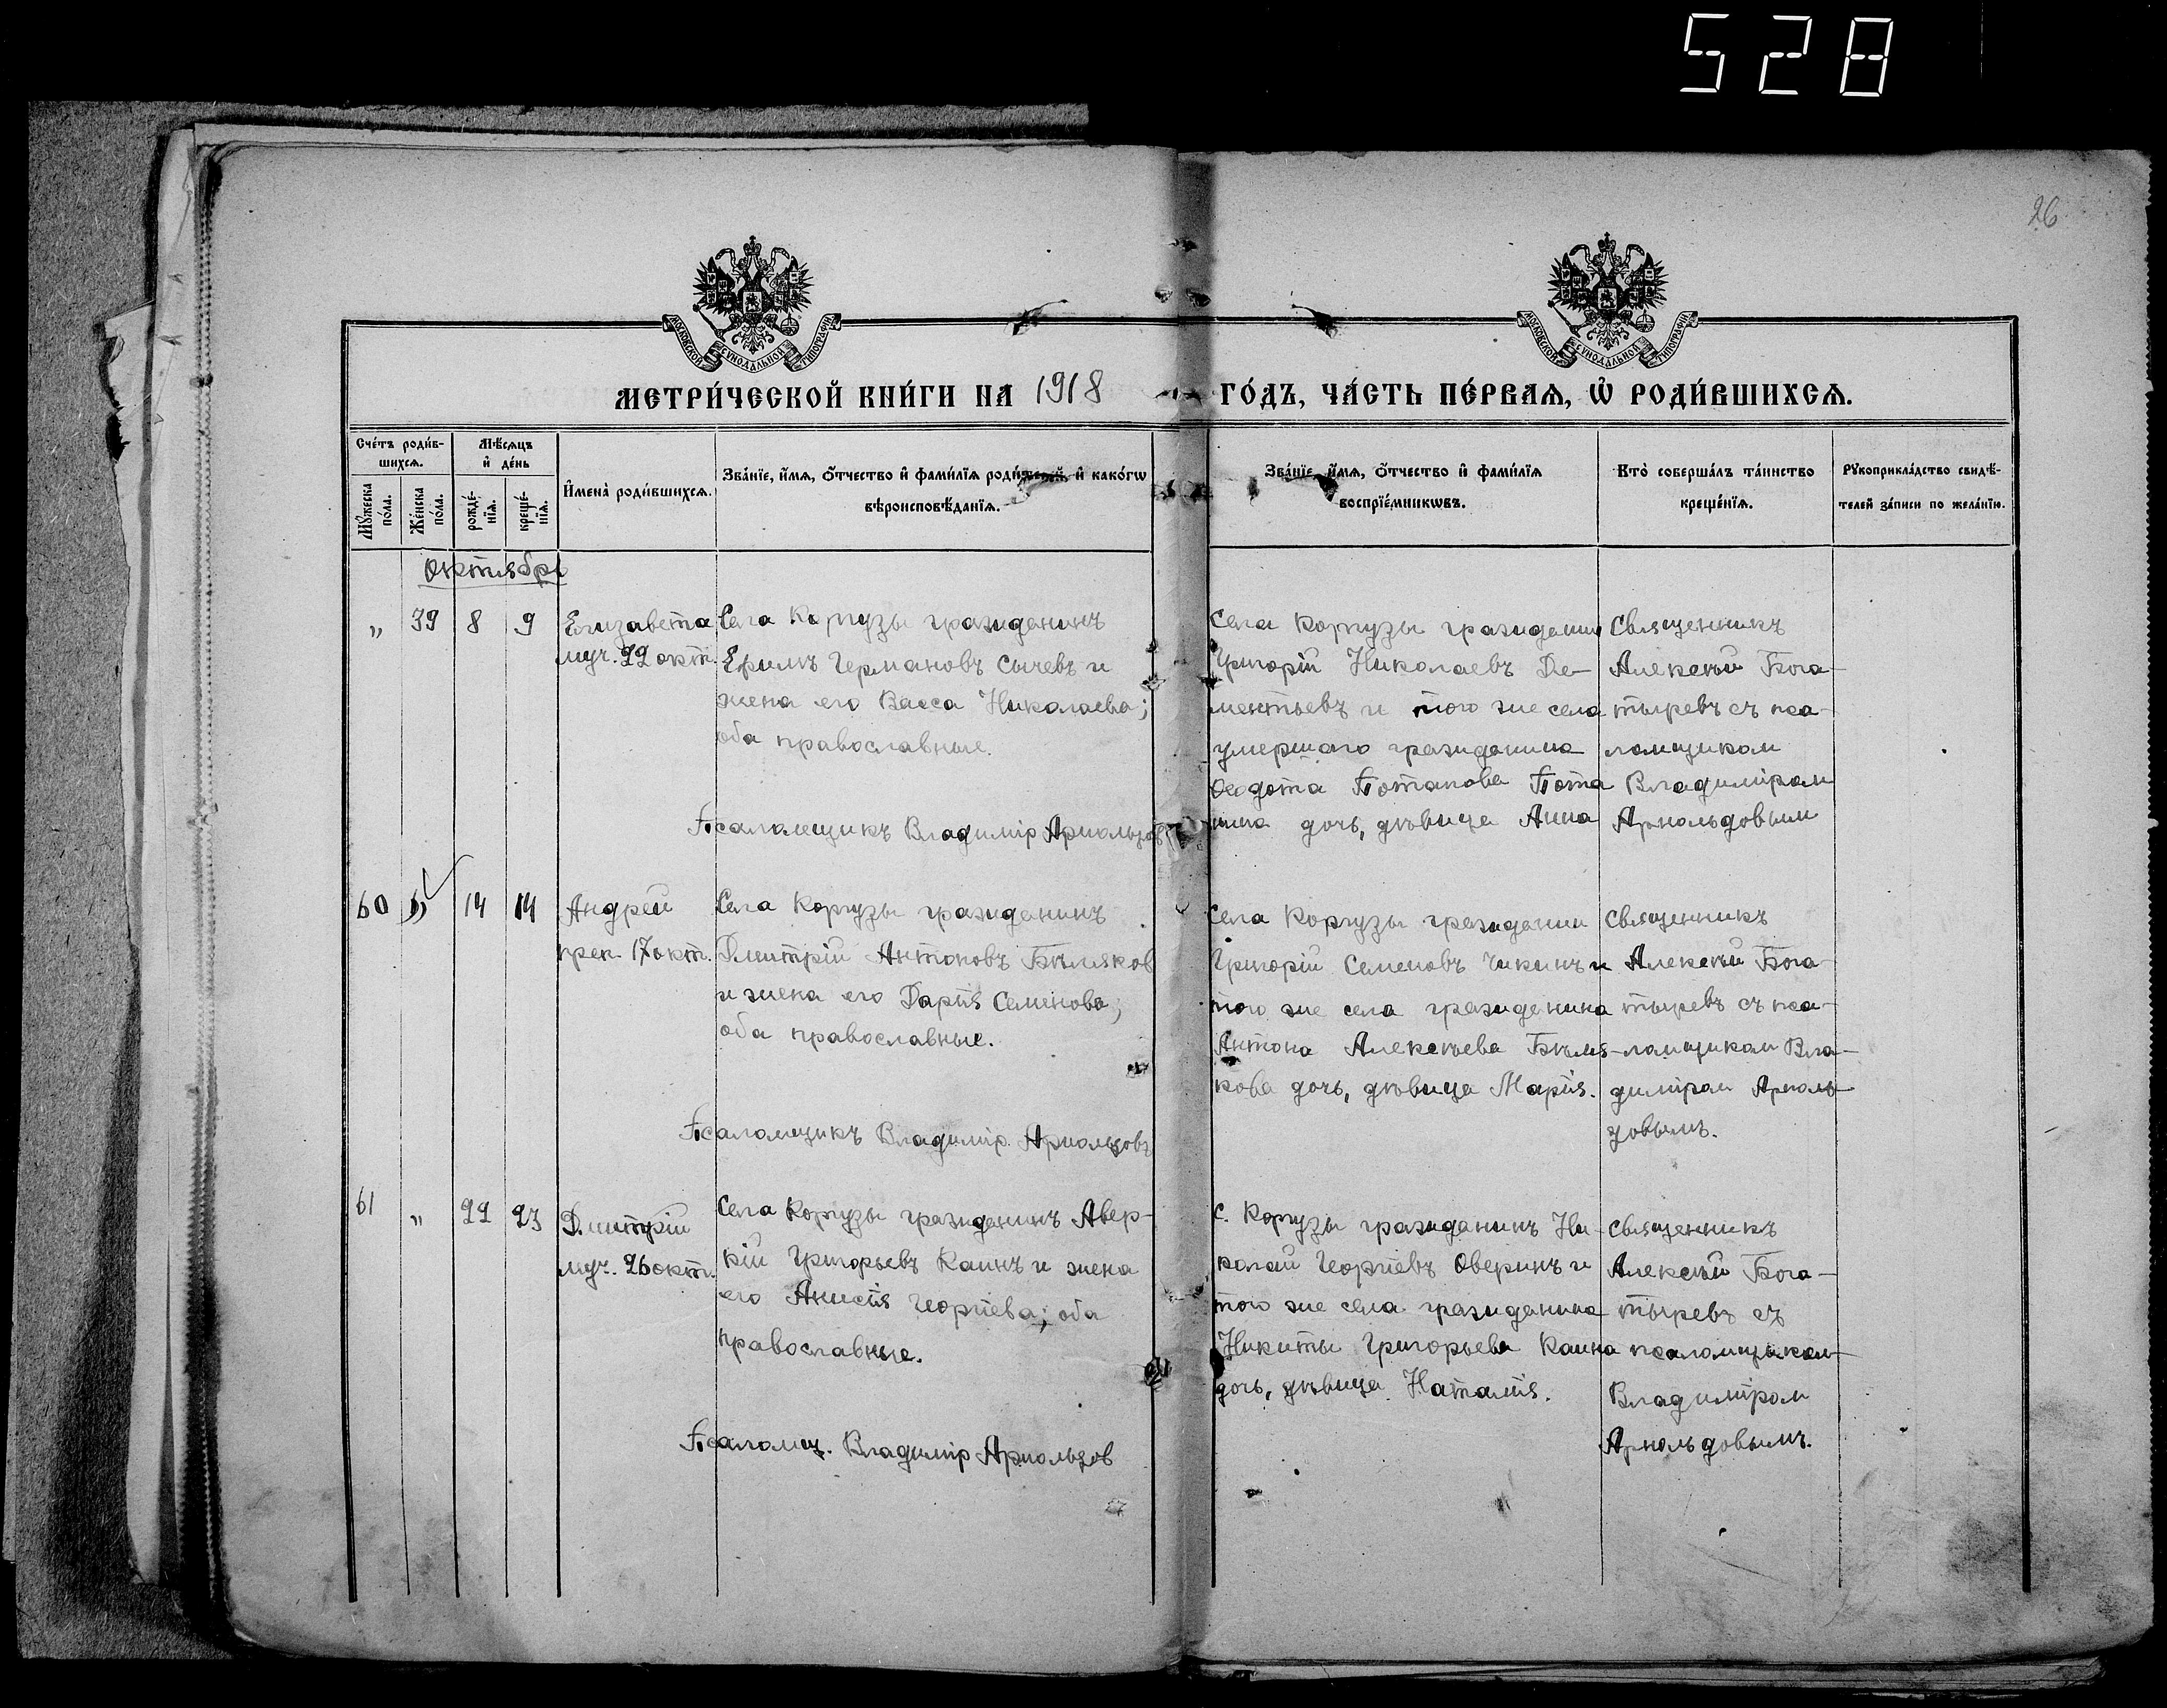 528
26
МОСКОВСКОЙ СѴНОДАЛЬНОЙ ТИПОГРАФІИ
МОСКОВСКОЙ СѴНОДАЛЬНОЙ ТИПОГРАФІИ
МЕТРИ́ЧЕСКОЙ КНИ́ГИ НА 1918
ГО́ДЪ, ЧА́СТЬ ПЕ́РВАЯ, Ѡ҆ РОДИ́ВШИХСЯ.
Сче́тъ роди́в-
шихся.
Мѣ́сяцъ
и҆ де́нь
Мꙋ́жеска по́ла.
Же́нска по́ла.
рожде́-
нїя.
креще́-
нїя.
И҆мена̀ роди́вшихся.
Зва́нїе, и҆́мя, ѻ҆́тчество и҆ фами́лїя роди́телей, и҆ како́гѡ
вѣроисповѣ́данїя.
Зва́нїе, и҆́мя, ѻ҆́тчество и҆ фами́лїя
воспрїе́мникѡвъ.
Кто̀ соверша́лъ та́инство
креще́нїя.
Рꙋкоприкла́дство свидѣ́-
телей за́писи по жела́нїю.
Октябрь
„ 39 8 9
Елизавета
муч. 22 окт.
Села Коргузы гражданинъ
Ефимъ Германовъ Сычевъ и
жена его Васса Николаева;
оба православные.
Села Коргузы гражданин
Григорій Николаевъ Де-
ментьевъ и того же села
умершаго гражданина
Ѳедота Потапова Пота
кина дочь, дѣвица Анна
Священникъ
Алексѣй Бога-
тыревъ съ пса-
ломщиком
Владиміром
Арнольдовым
Псаломщикъ Владимір Арнольдов
60 „ 14 14
Андрей
преп. 17 окт.
Села Коргузы гражданинъ
Дмитрій Антоновъ Бѣляков
и жена его Дарія Семенова;
оба православные.
Села Коргузы гражданин
Григорій Семеновъ Чикинъ и
того же села гражданина
Антона Алексѣева Бѣля-
кова дочь, дѣвица Марія.
Священникъ
Алексѣй Бога-
тыревъ съ пса-
ломщиком Вла-
диміром Арноль-
довымъ.
Псаломщикъ Владимір Арнольдовъ
61 „ 22 23
Дмитрій
муч. 26 окт.
Села Коргузы гражданинъ Авер-
кій Григорьевъ Каинъ и жена
его Анисія Георгіева; оба
православные.
с. Коргузы гражданинъ Ни-
колай Георгіевъ Оверинъ и
того же села гражданина
Никиты Григорьева Каина
дочь, дѣвица Наталія.
Священникъ
Алексѣй Бога-
тыревъ съ
псаломщиком
Владиміром
Арнольдовымъ.
Псаломщ. Владимір Арнольдов